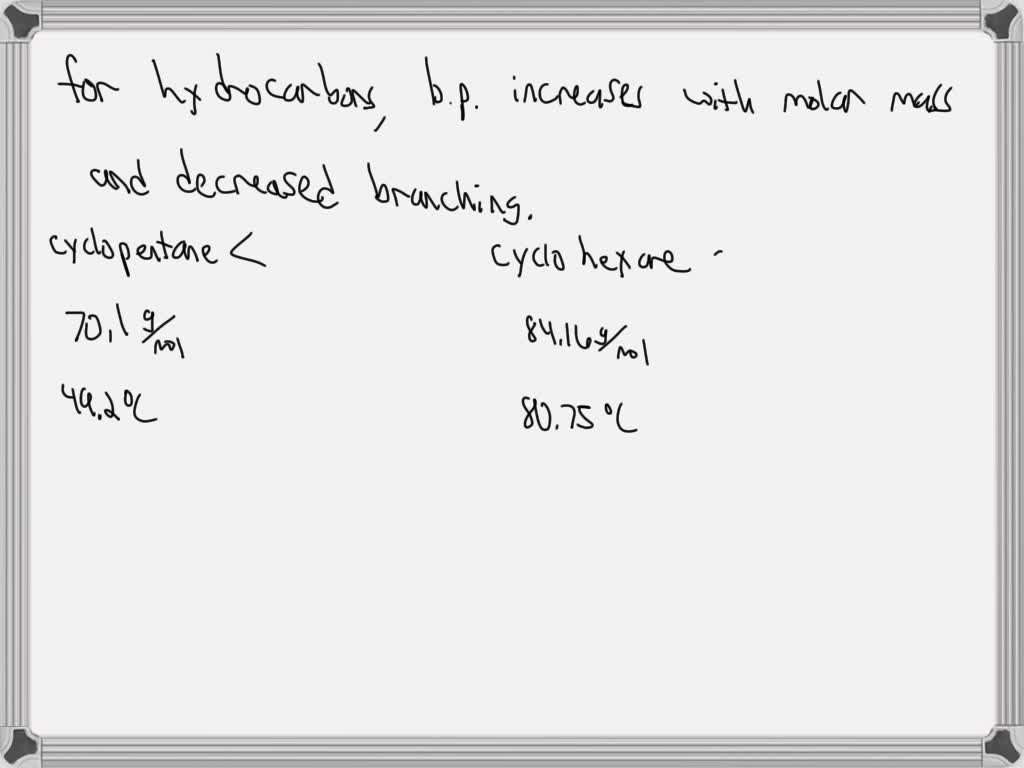 for hydrocarbons, b.p. increases with molar mass
and decreased branching.
cyclopentane < cyclohexane
70.1 g/mol 84.16 g/mol
49.2°C 80.75°C